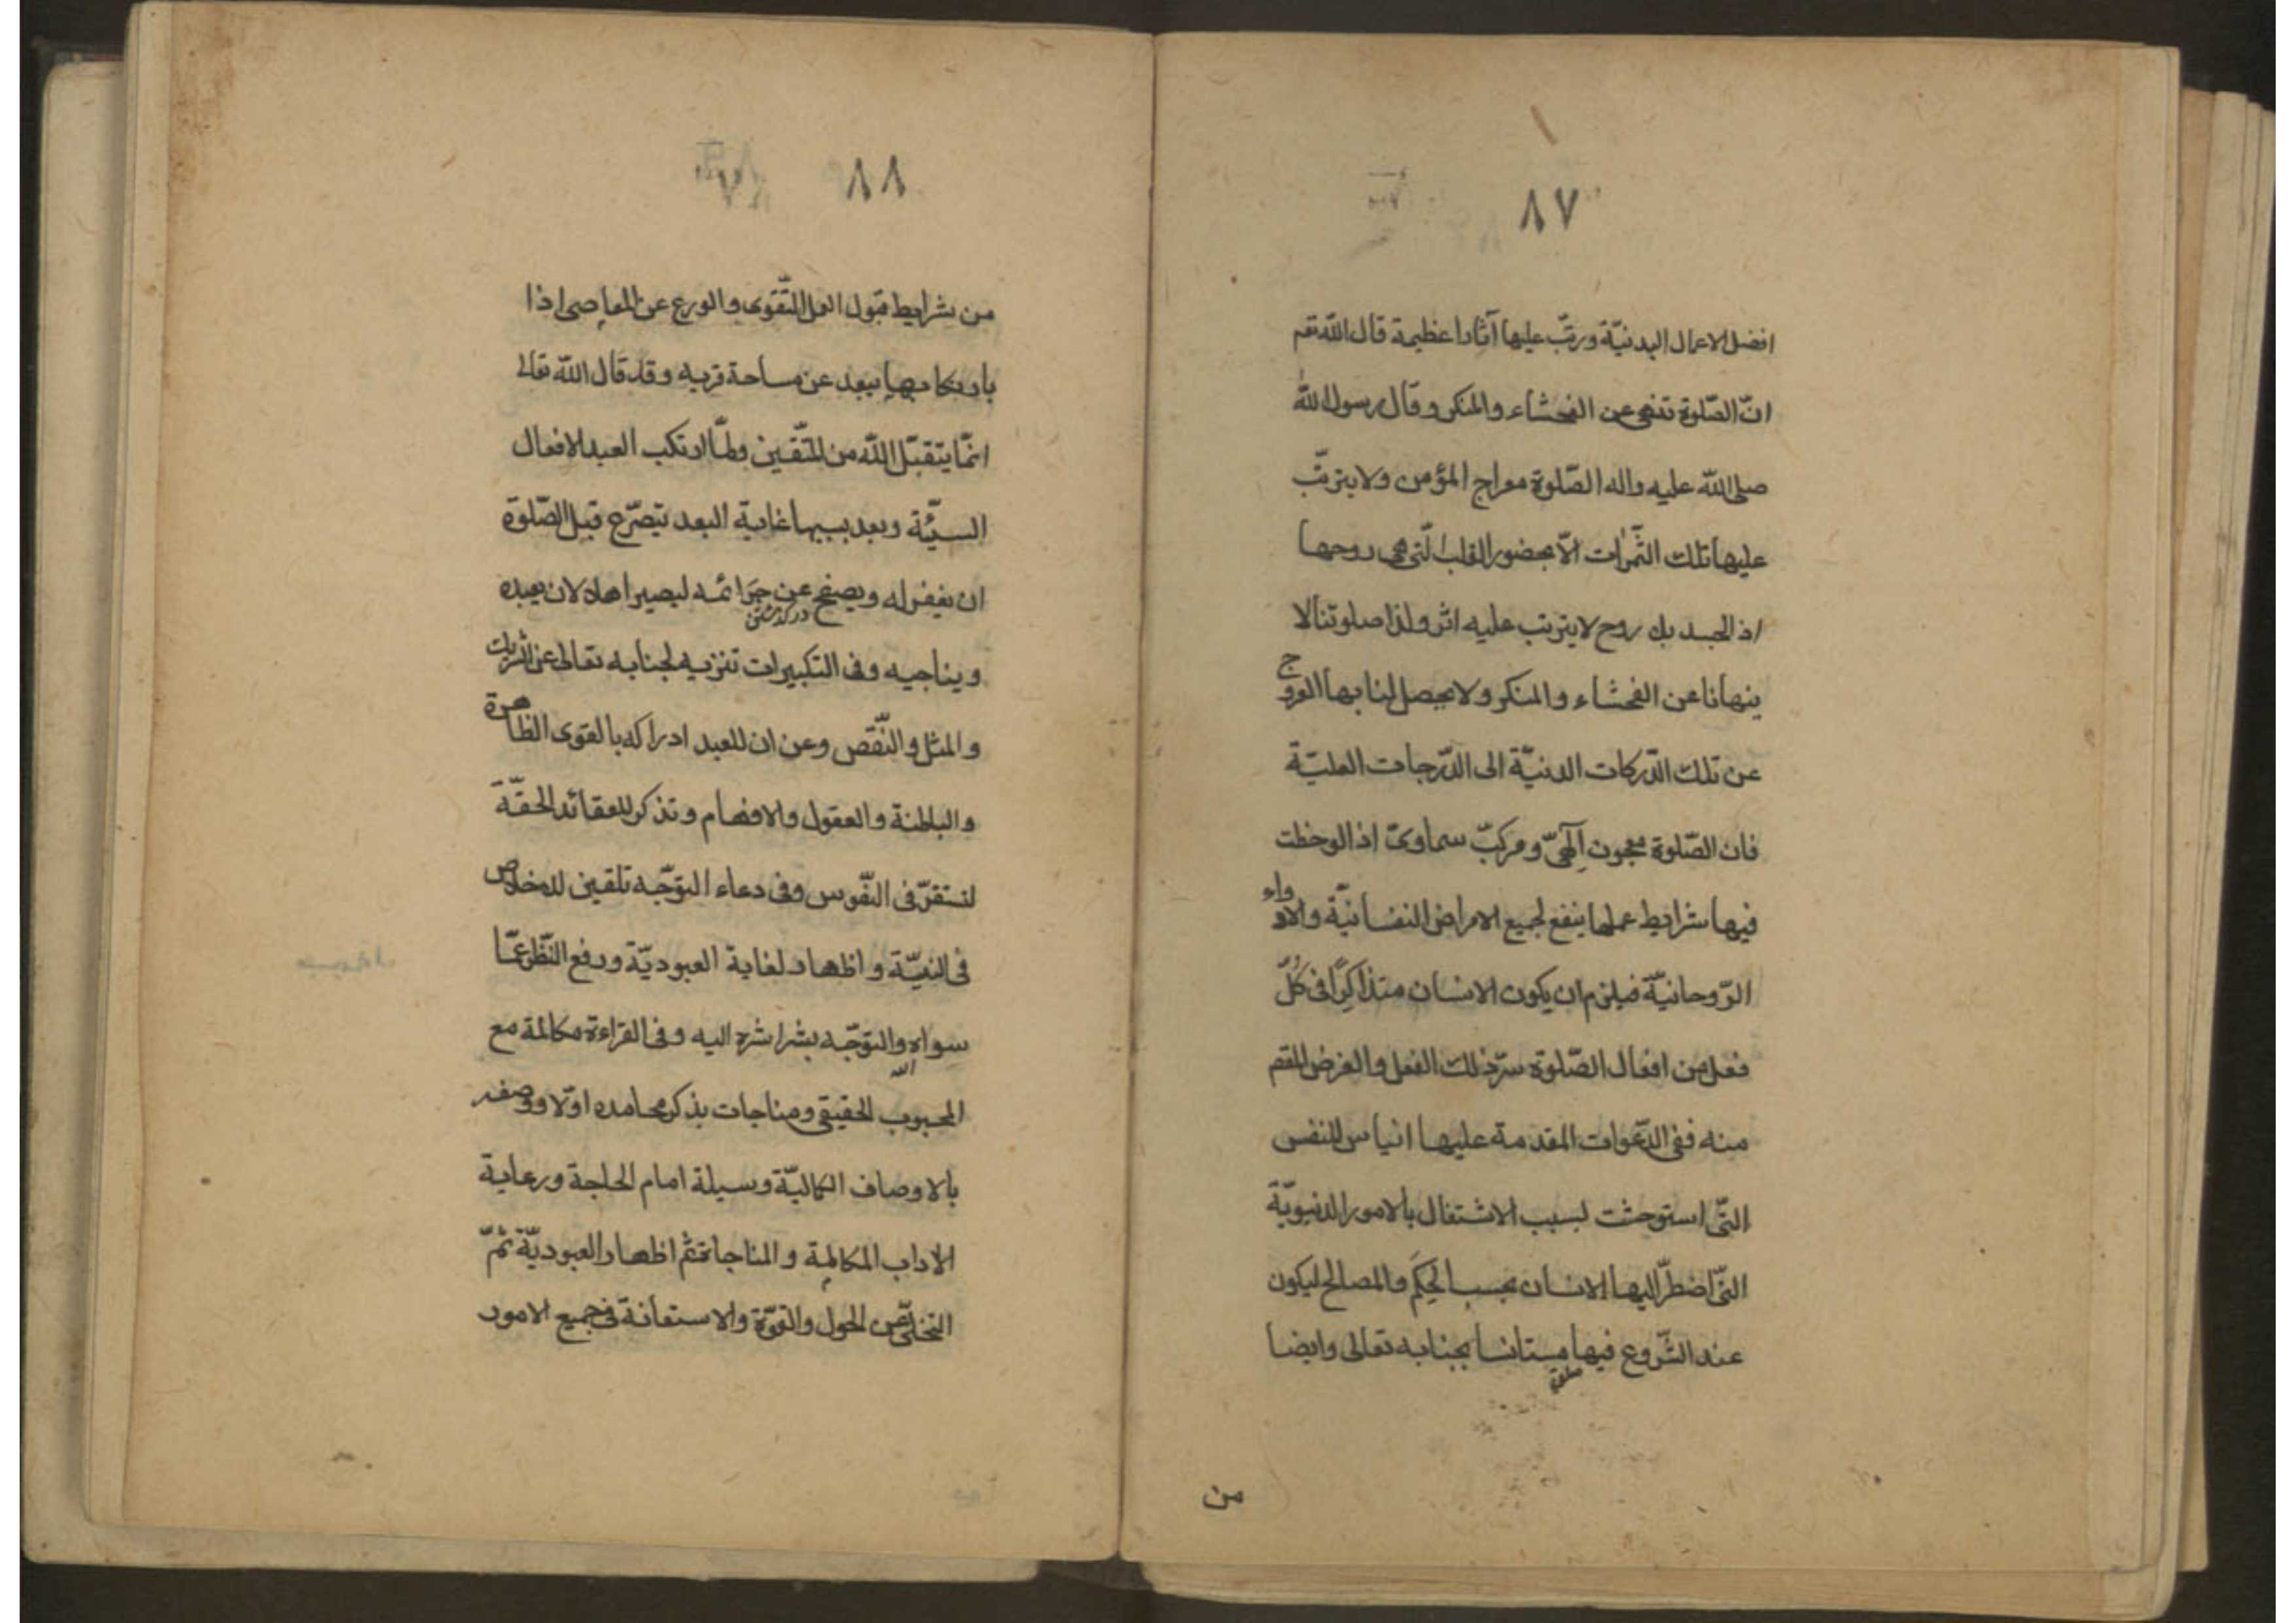 ٨٧
افضل الاعمال البدنيّة ورتّب عليها آثارا عظيمة قال اللّه تعم
انّ الصّلوة تنهى عن الفحشاء والمنكر وقال رسول اللّه
صلى اللّه عليه واله الصّلوة معراج المؤمن ولا يترتّب
عليها تلك الثّمرات الّا بحضور القلب الّتى هى روحها
اذ الجسد بلا روح لا يترتب عليه اثر ولذا صلوتنا لا
ينهانا عن الفحشاء والمنكر ولا يحصل لنا بها العروج
عن تلك الدّركات الدنيّة الى الدّرجات العليّة
فان الصّلوة معجون آلهىّ ومركبّ سماوىّ اذا لوحظت
فيها شرايط عملها ينفع لجميع الامراض النفسانيّة والادواء
الرّوحانيّة فيلزم ان يكون الانسان متذاكِرًا فى كُلّ
فعل من افعال الصّلوة سرّ ذلك الفعل والغرض المقصم
منه ففى الدّعوات المقدمة عليها ايناس للنفس
التّى استوحشت لسبب الاشتغال بالامور الدنيويّة
التّى اضطرّ اليها الانسان بحسب الحِكَم والمصالح ليكون
عند الشّروع فيها مستانسا بجنابه تعالى وايضا
من
٨٨
من شرايط قبول العمل التّقوى والورع عن المعاصى اذا
بارتكابها يبعد عن مساحة قربه وقد قال اللّه تعالى
انمّا يتقبّل اللّه من المتّقين ولمّا ارتكب العبد الافعال
السيّئة وبعد بسببها غاية البعد يتضرّع قبل الصّلوة
ان يغفر له ويصفح عن جَرَائمه ليصير اهلا لان يعبده
ويناجيه وفى التكبيرات تنزيه لجنابه تعالى عن الشريك
والمثل والنّقص وعن ان للعبد ادراكه بالقوى الظاهرة
والباطنة والعقول والافهام وتذكر للعقائد الحقّة
لتستقرّ فى النّفوس وفى دعاء التوّجه تلقين للاخلاص
فى النيّة واظهار لغاية العبوديّة ورفع النّظر عمّا
سواه والتوّجه بشراشره اليه وفى القراءة مكالمة مع
المحبوب الحقيقى ومناجات بذكر محامده اولّا ووصفه
اللّه
بالاوصاف الكماليّة وسيلة امام الحاجة ورعاية
الاداب المكالمة والمناجاة ثم اظهار العبوديّة ثمّ
التخلّى عن الحول والقوّة والاستعانة فى جميع الامور